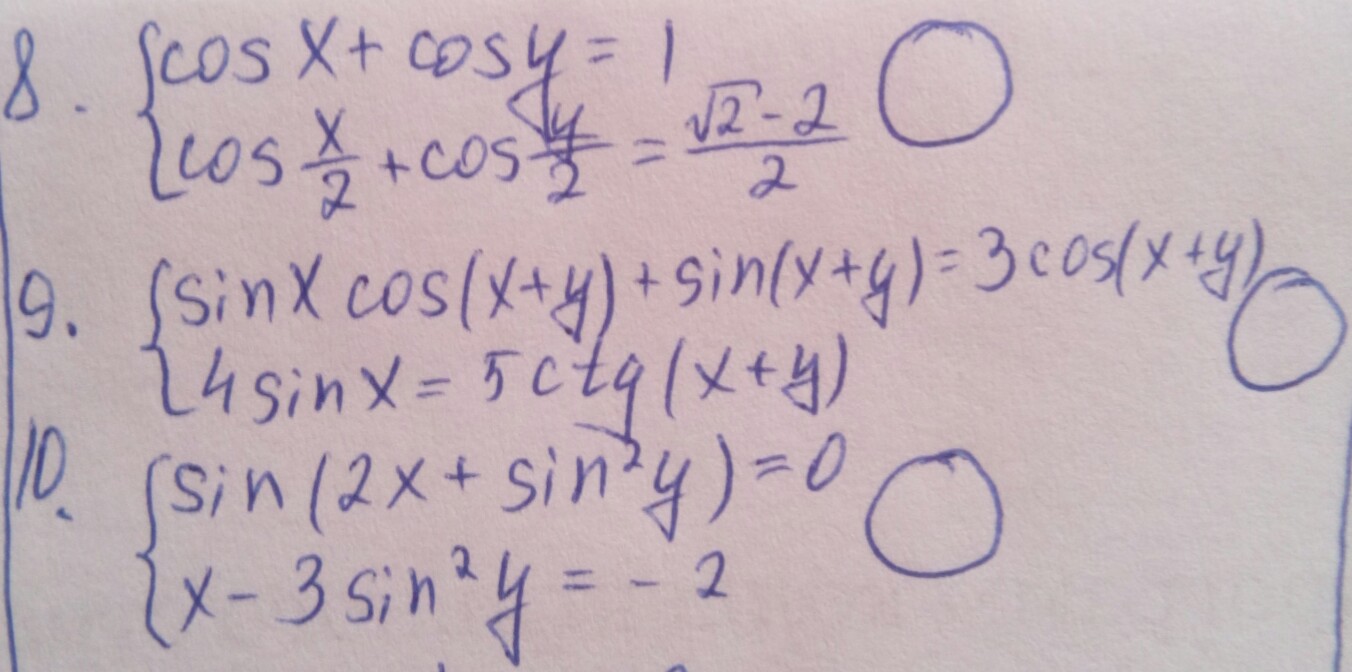 8. { cos x + cos y = 1
cos x/2 + cos y/2 = (√2 - 2)/2
9. { sin x cos(x+y) + sin(x+y) = 3 cos(x+y)
4 sin x = 5 ctg(x+y)
10. { sin(2x + sin²y) = 0
x - 3 sin²y = -2